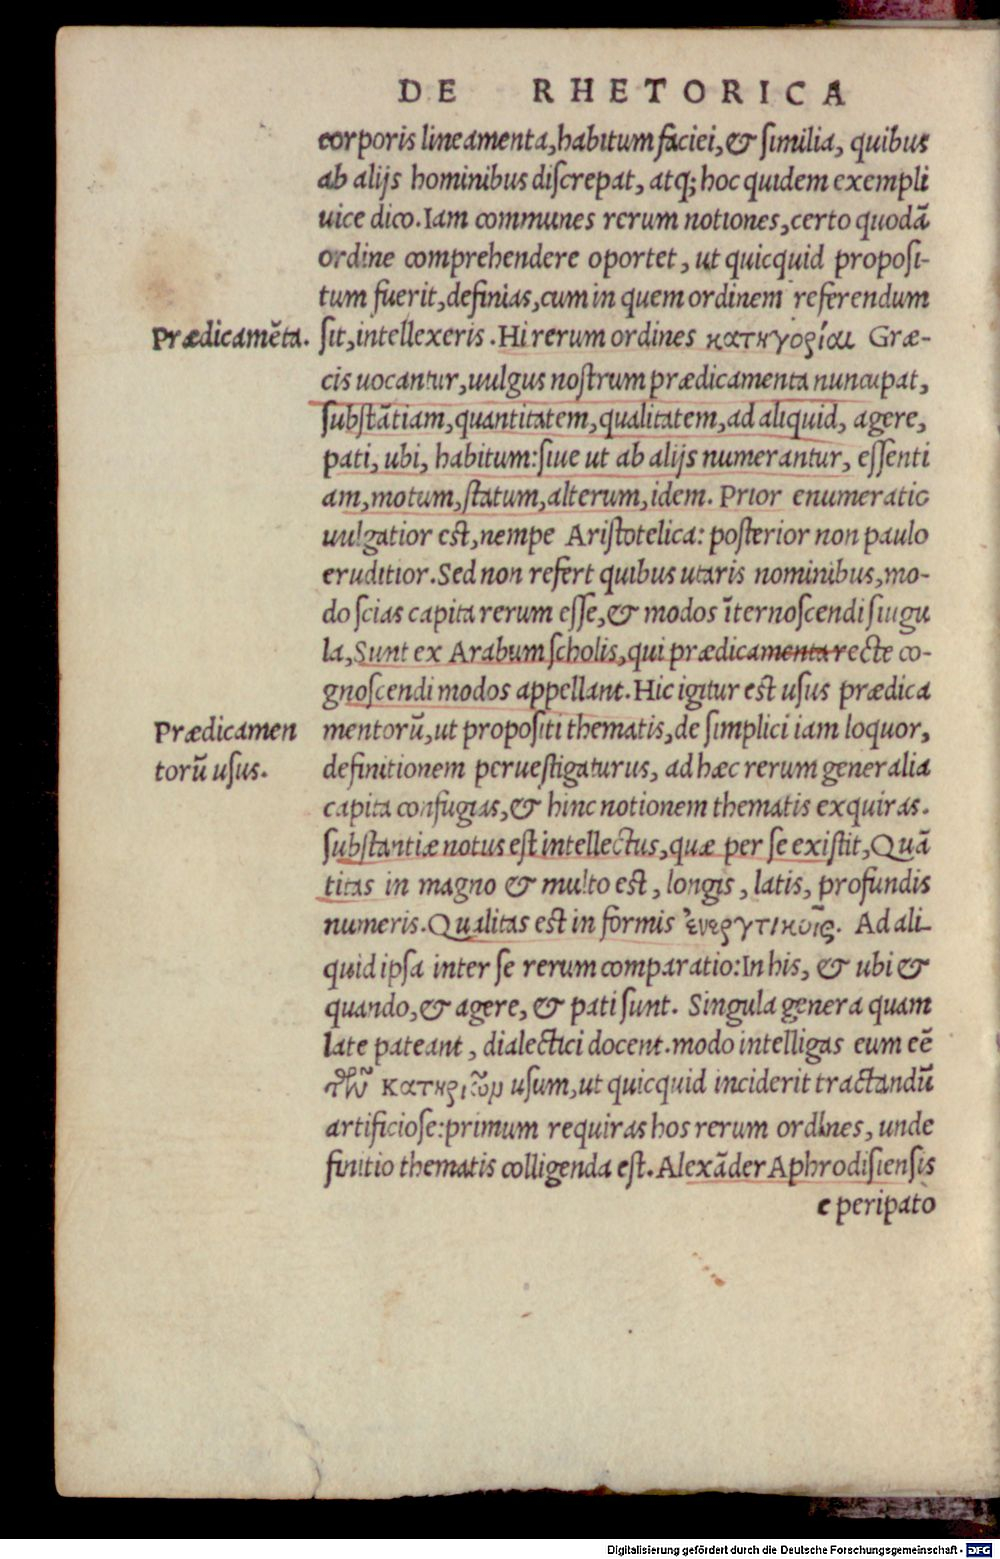 DE RHETORICA
corporis lineamenta, habitum faciei, & similia, quibus
ab alijs hominibus discrepat, atq; hoc quidem exempli
uice dico. Iam communes rerum notiones, certo quodã
ordine comprehendere oportet, ut quicquid proposi-
tum fuerit, definias, cum in quem ordinem referendum
Prædicamẽta.
sit, intellexeris. Hi rerum ordines κατηγορίαι Græ-
cis uocantur, uulgus nostrum prædicamenta nuncupat,
substãtiam, quantitatem, qualitatem, ad aliquid, agere,
pati, ubi, habitum: siue ut ab alijs numerantur, essenti
am, motum, statum, alterum, idem. Prior enumeratio
uulgatior est, nempe Aristotelica: posterior non paulo
eruditior. Sed non refert quibus utaris nominibus, mo-
do scias capita rerum esse, & modos ĩternoscendi singu
la, Sunt ex Arabum scholis, qui prædicamenta recte co-
gnoscendi modos appellant. Hic igitur est usus prædica
Prædicamen
torũ usus.
mentorũ, ut propositi thematis, de simplici iam loquor,
definitionem peruestigaturus, ad hæc rerum generalia
capita confugias, & hinc notionem thematis exquiras.
substantiæ notus est intellectus, quæ per se existit, Quã
titas in magno & multo est, longis, latis, profundis
numeris. Qualitas est in formis ἐνεργτικοῖς. Ad ali-
quid ipsa inter se rerum comparatio: In his, & ubi &
quando, & agere, & pati sunt. Singula genera quam
late pateant, dialectici docent. modo intelligas eum eẽ
τῶν κατηριῶν usum, ut quicquid inciderit tractandũ
artificiose: primum requiras hos rerum ordines, unde
finitio thematis colligenda est. Alexãder Aphrodisiensis
e peripato
Digitalisierung gefördert durch die Deutsche Forschungsgemeinschaft - DFG